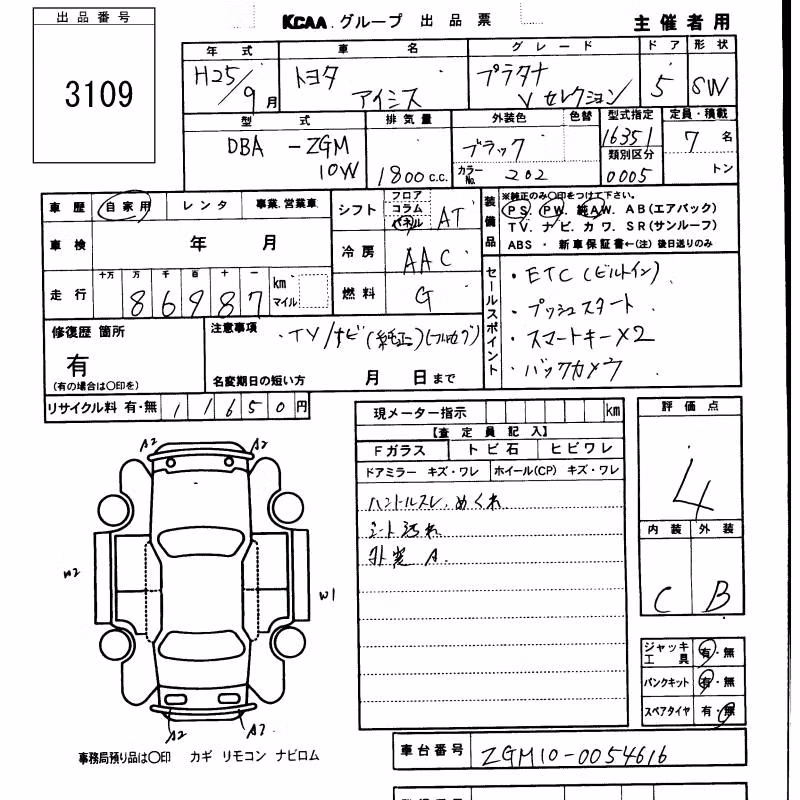 出品番号
3109
KCAA グループ 出品票
主催者用
年式 車名 グレード ドア 形状
H25/9月 トヨタ アイシス プラタナ Vセレクション 5 SW
型式 排気量 外装色 色替 型式指定 定員・積載
DBA-ZGM10W 1800c.c. ブラック 16351 7名
カラーNo. 202 類別区分 0005 トン
車歴 自家用 レンタ 事業、営業車
シフト フロア コラム パネル AT
装備品 ※純正のみ〇印をつけて下さい。
PS. PW. 純AW. AB(エアバック)
TV. ナビ. カワ. SR(サンルーフ)
ABS ・ 新車保証書←(注)後日送りのみ
車検 年 月
冷房 AAC
走行 十万 万 千 百 十 一 km マイル
86987
燃料 G
セールスポイント
・ETC(ビルトイン)
・プッシュスタート
・スマートキー×2
・バックカメラ
修復歴 箇所
有
(有の場合は〇印を)
注意事項
・TV/ナビ(純正)(フルセグ)
名変期日の短い方 月 日まで
リサイクル料 有・無 11650円
現メーター指示 km
【査定員記入】
Fガラス トビ石 ヒビワレ
ドアミラー キズ・ワレ ホイール(CP) キズ・ワレ
ハンドルスレ、めくれ
シート汚れ
外装 A
評価点
4
内装 外装
C B
A2 A2
W2 W1
A2 A2
ジャッキ工具 有・無
パンクキット 有・無
スペアタイヤ 有・無
車台番号 ZGM10-0054616
事務局預り品は〇印 カギ リモコン ナビロム